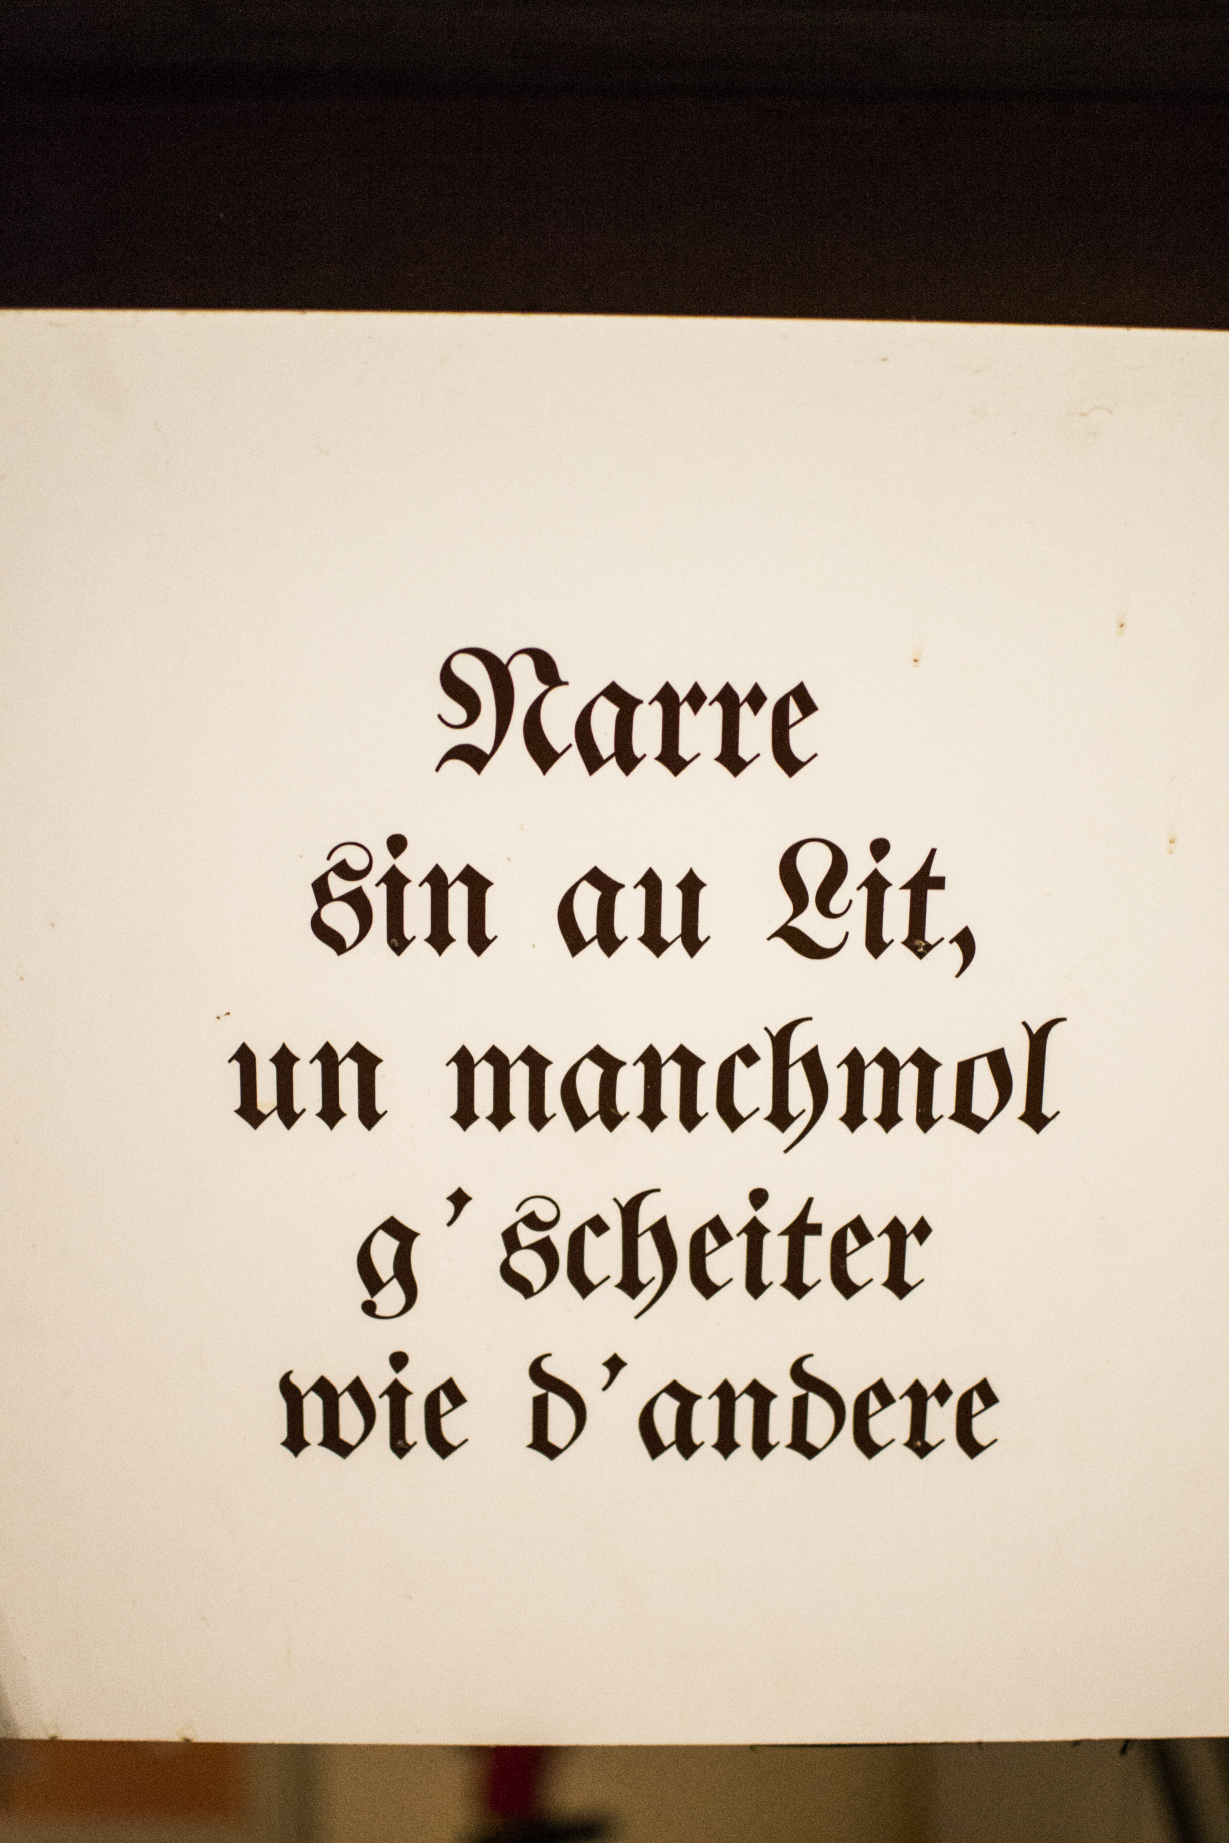 Narre
sin au Lit,
un manchmol
g'scheiter
wie d'andere